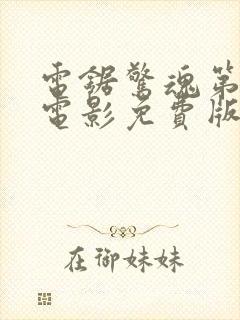 電鋸驚魂第
電影免費版
在御妹妹